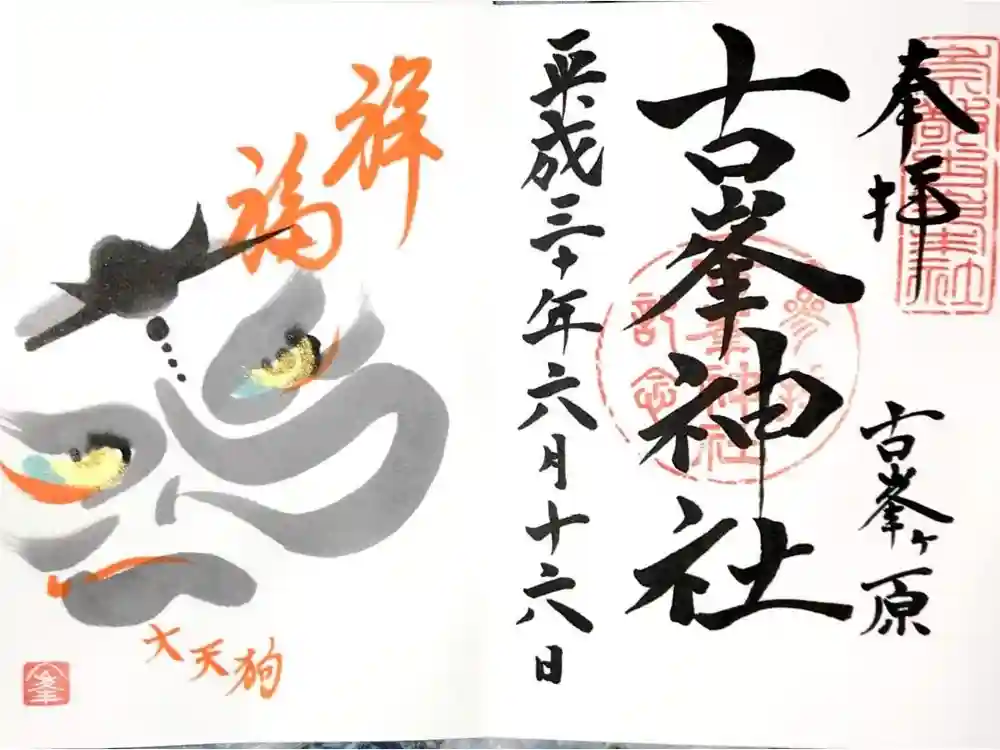 奉拝
古峯ヶ原
古峯神社
平成三十年六月十六日
祥福
大天狗